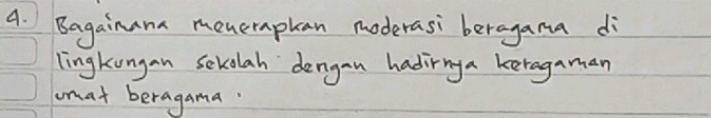 4. Bagaimana menerapkan moderasi beragama di
lingkungan sekolah dengan hadirnya keragaman
umat beragama.